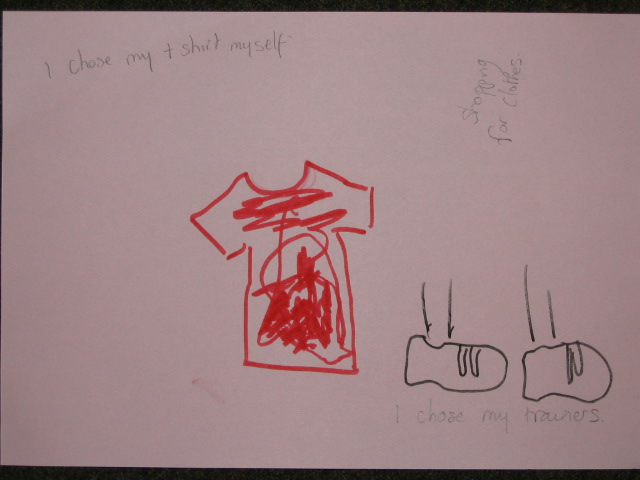 I chose my t shirt myself.
Shopping
for clothes.
I chose my trainers.